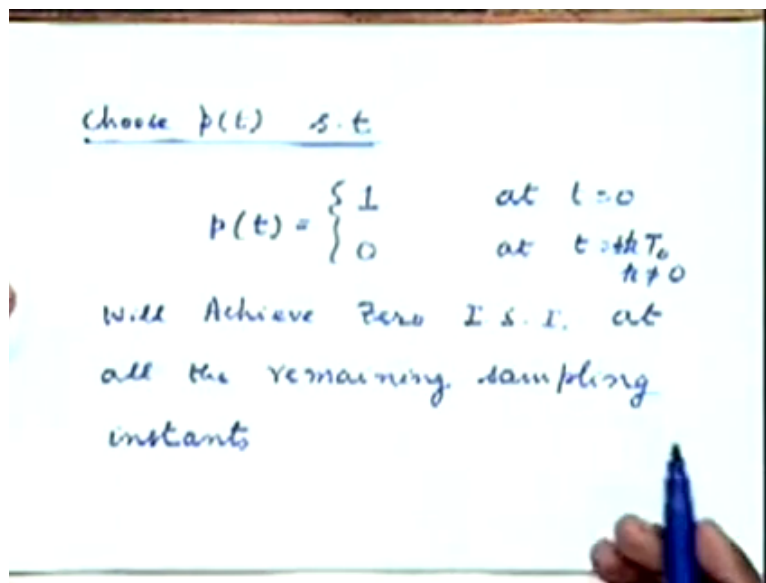 Choose p(t) s.t
p(t) = { 1 at t = 0
0 at t = ±kT₀
k ≠ 0
Will Achieve Zero I.S.I. at
all the remaining sampling
instants